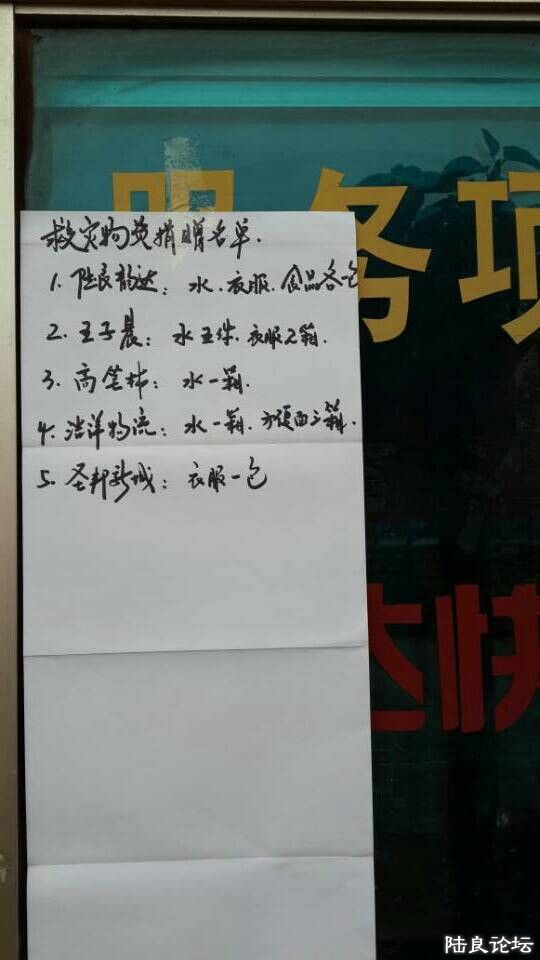 服务项
救灾物资捐赠名单.
1. 陆良韵达：水.衣服.食品各1包
2. 王子晨：水五件.衣服2箱.
3. 高笙林：水一箱.
4. 浩洋物流：水一箱.方便面三箱.
5. 圣邦新城：衣服一包
达快
陆良论坛